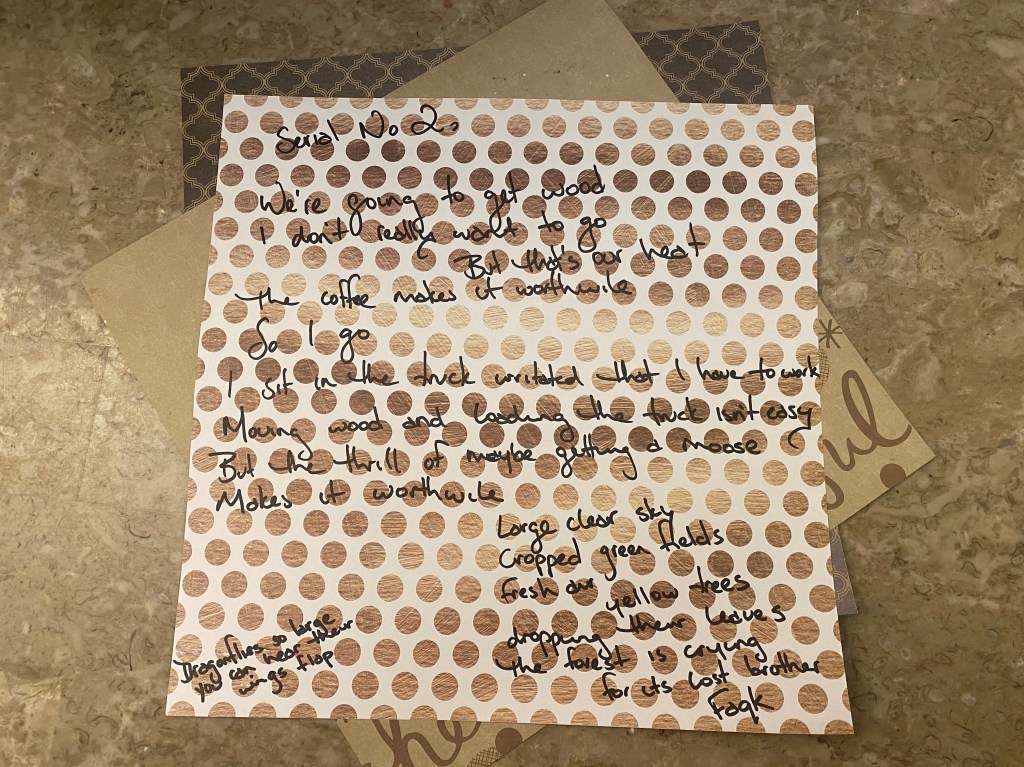 Serial No 2.
We're going to get wood
I don't really want to go
But that's our heat
The coffee makes it worthwile
So I go
I sit in the truck irritated that I have to work
Moving wood and loading the truck isn't easy
But the thrill of maybe getting a moose
Makes it worthwile
Large clear sky
Cropped green fields
Fresh air yellow trees
dropping their leaves
The forest is crying
for its lost brother
Faqk
Dragonflies so large
you can hear their
wings flap